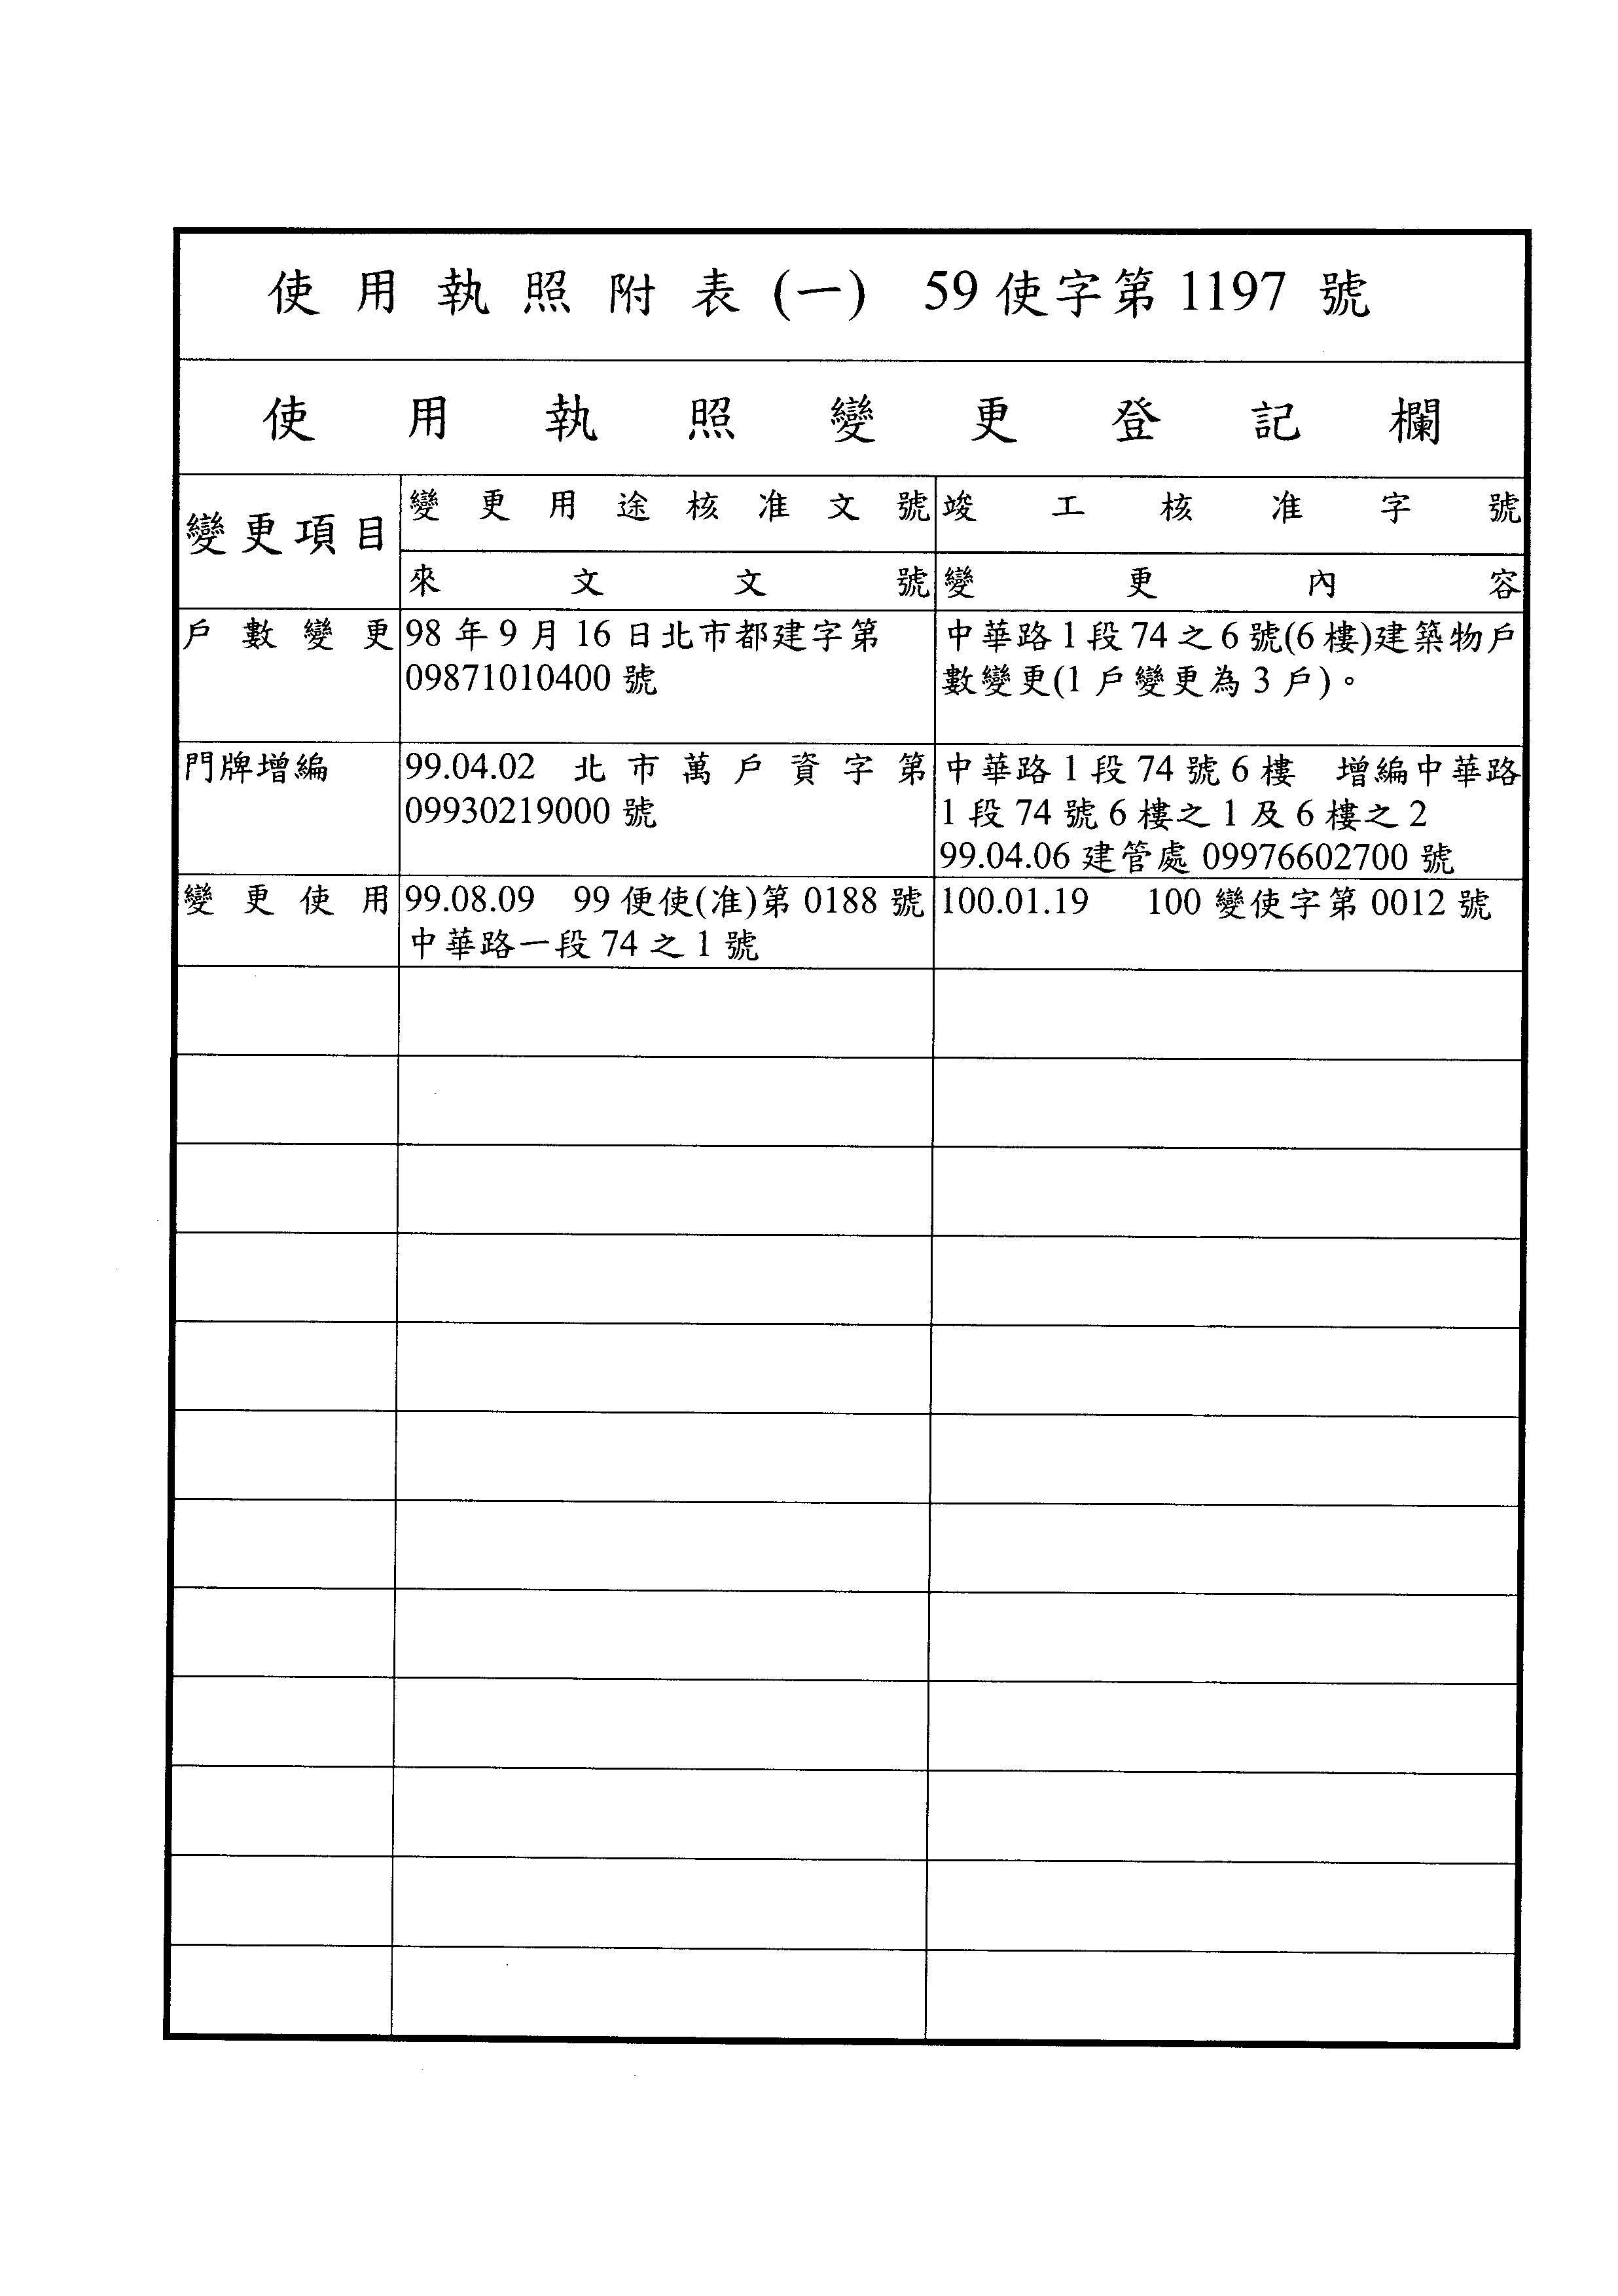 使用執照附表(一) 59使字第1197號
使用執照變更登記欄
變更項目
變更用途核准文號
竣工核准字號
來文文號
變更內容
戶數變更
98年9月16日北市都建字第
09871010400號
中華路1段74之6號(6樓)建築物戶
數變更(1戶變更為3戶)。
門牌增編
99.04.02 北市萬戶資字第
09930219000號
中華路1段74號6樓 增編中華路
1段74號6樓之1及6樓之2
99.04.06建管處09976602700號
變更使用
99.08.09 99便使(准)第0188號
中華路一段74之1號
100.01.19 100變使字第0012號